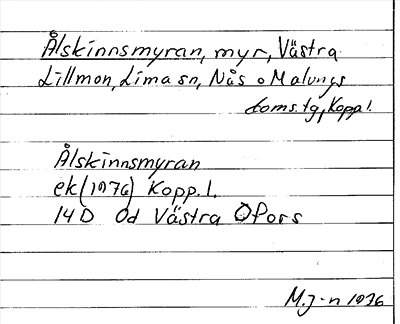 Ålskinnsmyran, myr, Västra
Lillmon, Lima sn, Nås o Malungs
doms.tg, Kopp l.
Ålskinnsmyran
ek (1976) Kopp. l.
14D 0d Västra Ofors
M.J-n 1976